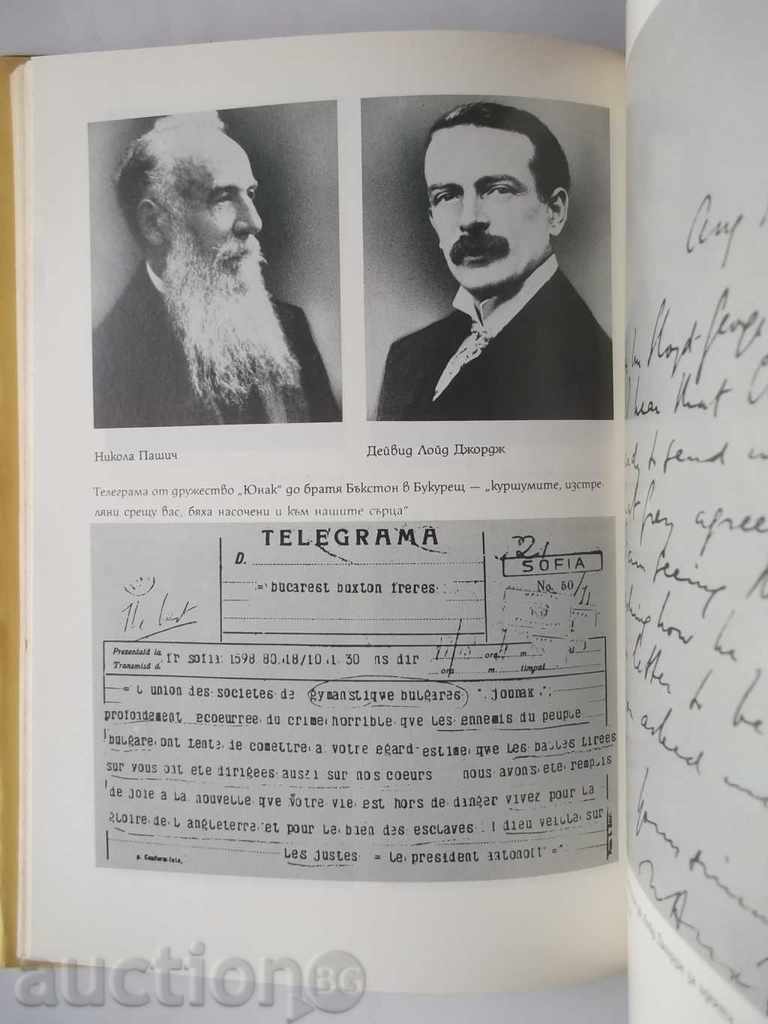 Никола Пашич
Дейвид Лойд Джордж
Телеграма от дружество „Юнак“ до братя Бъкстон в Букурещ — „куршумите, изстре-
ляни срещу вас, бяха насочени и към нашите сърца“
TELEGRAMA
D.
=bucarest buxton freres
2
SOFIA
No. 50/11
Prezentată la
Transmisă d
fr sofia 1598 80 18/10 1 30 ns dir
ora m
ora m. timpul
= L union des societes de gymanstique bulgares jounak
profondement ecoeurree du crime horrible que les ennemis du peuple
bulgare ont tente de comettre a votre egard estime que les balles tirees
sur vous ont ete dirigees aussi sur nos coeurs nous avons ete remplis
de joie a la nouvelle que votre vie est hors de danger vivez pour la
gloire de l angleterre et pour le bien des esclaves dieu veille sur
les justes = le president antonoff =
Lloyd-George
hear that
to send
Grey agree
seeing
how he
letter to be
asked me
auctionBG